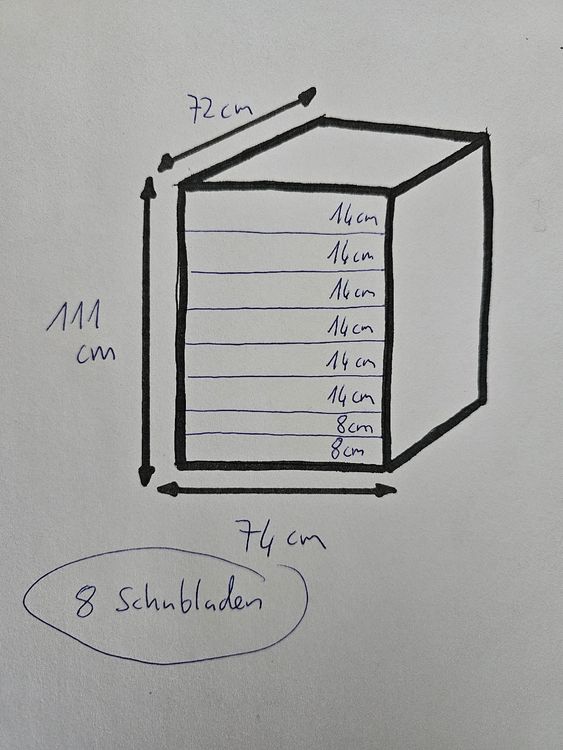 72cm
14cm
14cm
14cm
14cm
14cm
14cm
8cm
8cm
111
cm
74 cm
8 Schubladen